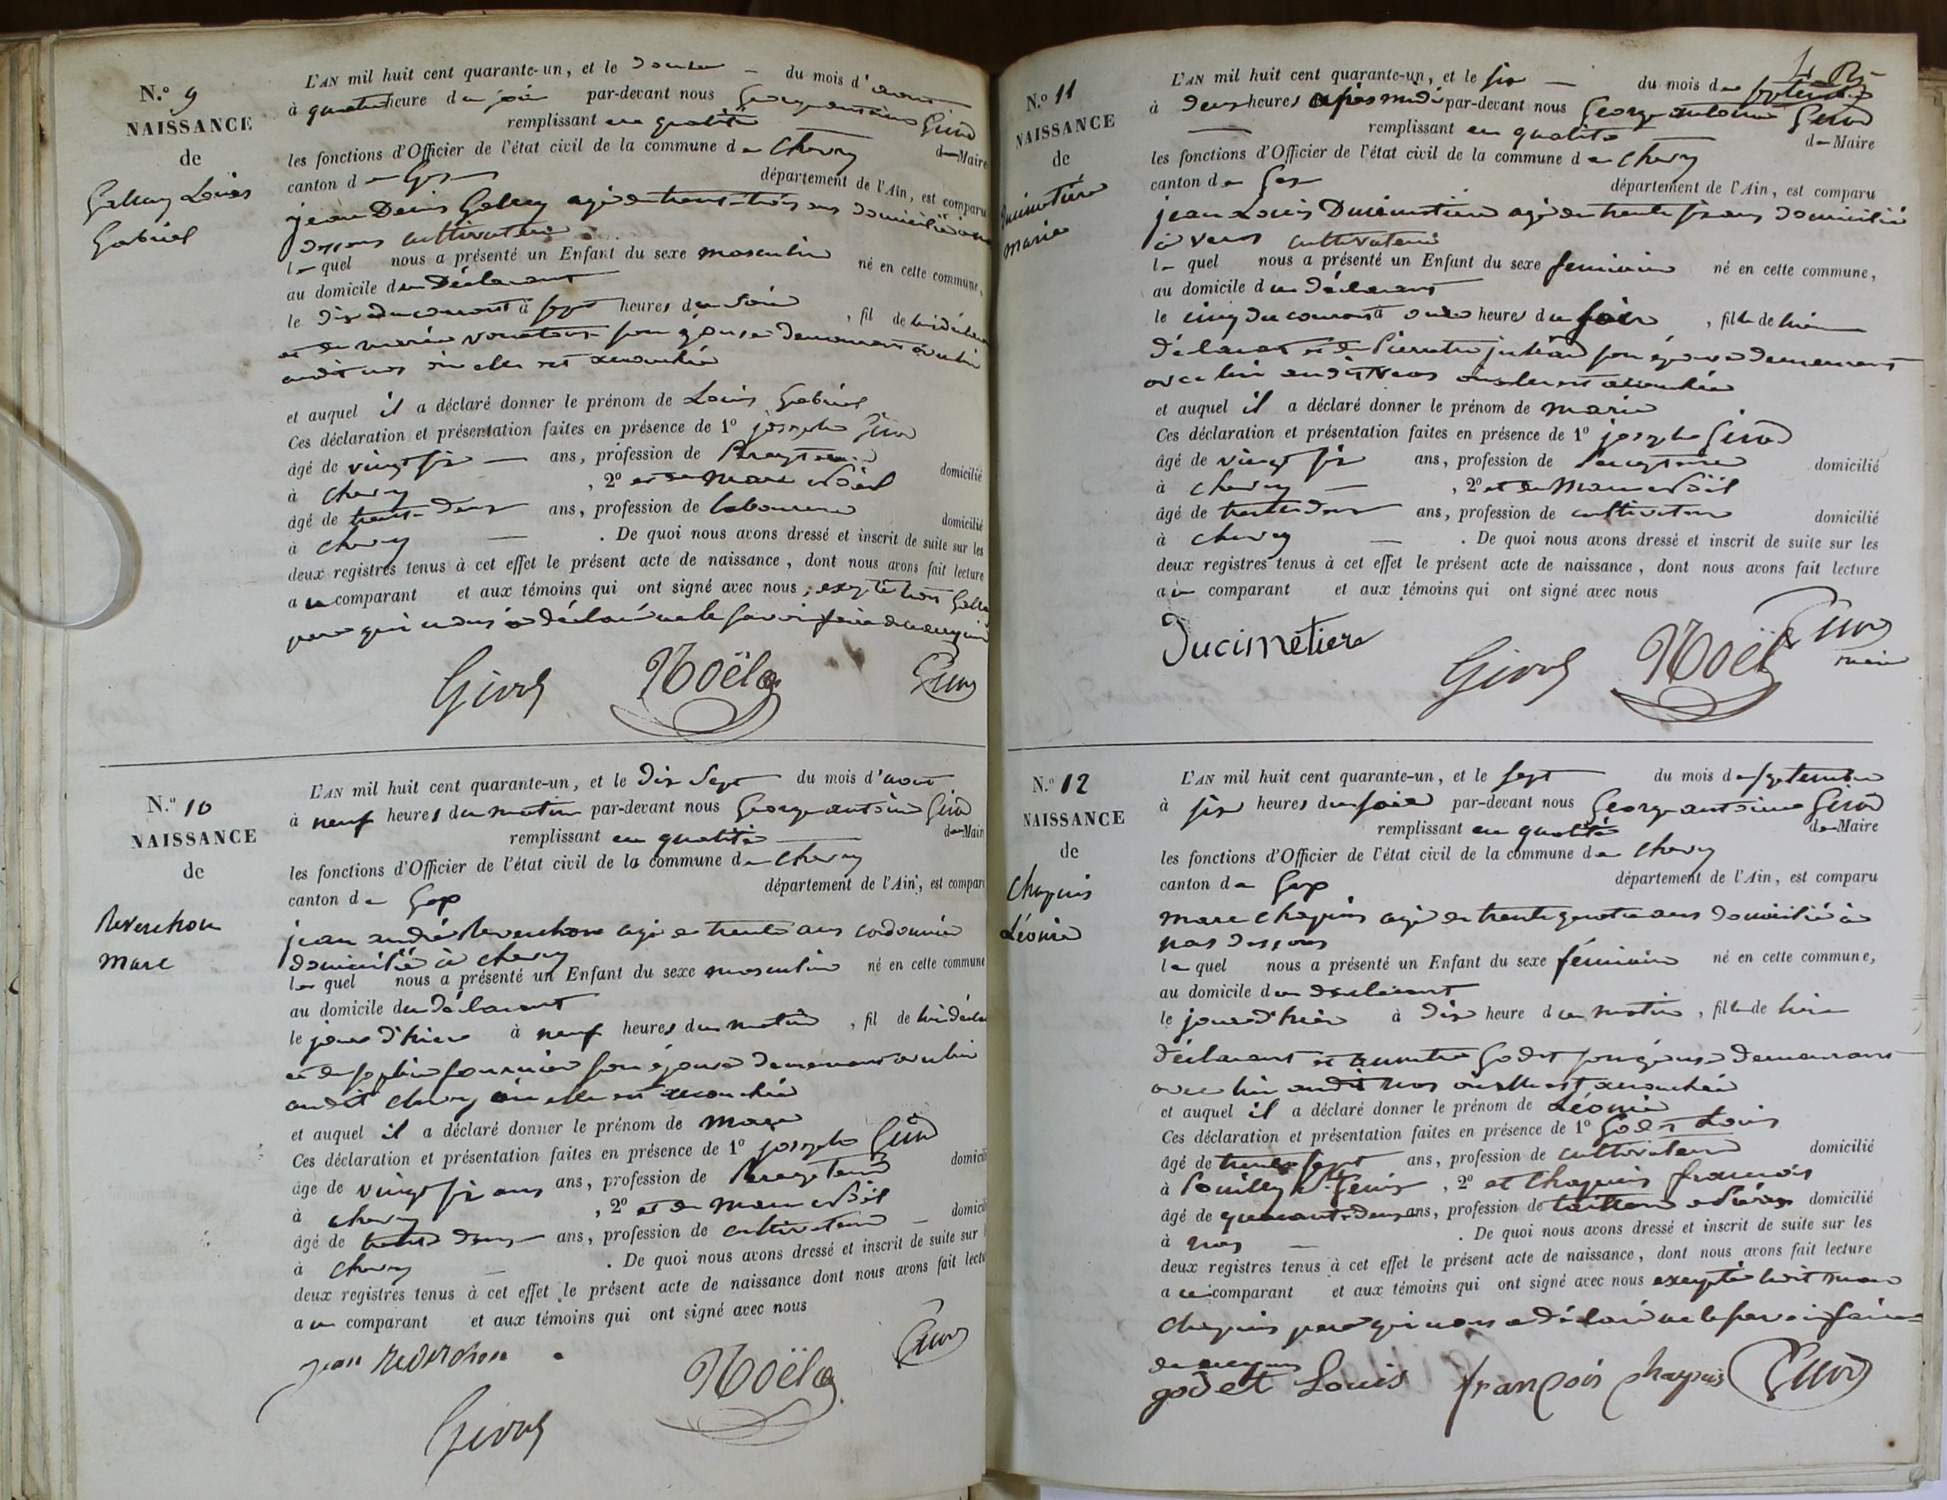 N.º 9
NAISSANCE
de
Louis
Gabriel
L'AN mil huit cent quarante-un, et le douze du mois d'août
à quatre heure du soir par-devant nous George antoine Girod
remplissant en qualité de Maire
les fonctions d'Officier de l'état civil de la commune de Chevry
canton de Gex département de l'Ain, est comparu
jean Denis agé de trente trois ans domicilié à
dessous cultivateur
lequel nous a présenté un Enfant du sexe masculin né en cette commune,
au domicile du Déclarant
le dix du courant à sept heures du soir, fil de lui déclarant
et de marie son épouse demeurant avec lui
audit où elle est accouchée
et auquel il a déclaré donner le prénom de Louis Gabriel
Ces déclaration et présentation faites en présence de 1º joseph Girod
âgé de vingt six ans, profession de domicilié
à chevry, 2º et de Marc Noël
âgé de trente-deux ans, profession de laboureur domicilié
à chevry. De quoi nous avons dressé et inscrit de suite sur les
deux registres tenus à cet effet le présent acte de naissance, dont nous avons fait lecture
a ce comparant et aux témoins qui ont signé avec nous, excepté
pour qui nous a déclaré ne le savoir faire de ce requis
Girod Noël Girod
N.º 10
NAISSANCE
de
Reverchon
Marc
L'AN mil huit cent quarante-un, et le dix sept du mois d'aout
à neuf heures du matin par-devant nous George antoine Girod
remplissant en qualité de Maire
les fonctions d'Officier de l'état civil de la commune de Chevry
canton de Gex département de l'Ain, est comparu
jean andré Reverchon agé de trente ans cordonnier
domicilié à chevry
lequel nous a présenté un Enfant du sexe masculin né en cette commune
au domicile du déclarant
le jour d'hier à neuf heures du matin, fil de lui déclarant
et de sophie fournier son épouse demeurant avec lui
audit chevry où elle est accouchée
et auquel il a déclaré donner le prénom de Marc
Ces déclaration et présentation faites en présence de 1º joseph Girod
âgé de vingt six ans ans, profession de domicilié
à chevry, 2º et de Marc Noël
âgé de trente deux ans, profession de cultivateur domicilié
à chevry. De quoi nous avons dressé et inscrit de suite sur
deux registres tenus à cet effet le présent acte de naissance dont nous avons fait lecture
a ce comparant et aux témoins qui ont signé avec nous
jean Reverchon
Girod Noël Girod
N.º 11
NAISSANCE
de
Ducimetière
marie
L'AN mil huit cent quarante-un, et le six du mois de septembre
à deux heures après midi par-devant nous George antoine Girod
remplissant en qualité de Maire
les fonctions d'Officier de l'état civil de la commune de Chevry
canton de Gex département de l'Ain, est comparu
jean Louis Ducimetière agé de trente six ans domicilié
à veraz cultivateur
lequel nous a présenté un Enfant du sexe feminin né en cette commune,
au domicile du déclarant
le cinq du courant à onze heures du soir, fille de lui
déclarant et de Pierrette son épouse demeurant
avec lui audit veraz où elle est accouchée
et auquel il a déclaré donner le prénom de marie
Ces déclaration et présentation faites en présence de 1º joseph Girod
âgé de vingt six ans, profession de domicilié
à chevry, 2º et de Marc Noël
âgé de trente deux ans, profession de cultivateur domicilié
à chevry. De quoi nous avons dressé et inscrit de suite sur les
deux registres tenus à cet effet le présent acte de naissance, dont nous avons fait lecture
a ce comparant et aux témoins qui ont signé avec nous
Ducimetiere Girod Noël Girod
maire
N.º 12
NAISSANCE
de
Chapuis
Léonie
L'AN mil huit cent quarante-un, et le sept du mois de septembre
à six heures du soir par-devant nous George antoine Girod
remplissant en qualité de Maire
les fonctions d'Officier de l'état civil de la commune de Chevry
canton de Gex département de l'Ain, est comparu
marc chapuis agé de trente quatre ans domicilié à
naz dessous
lequel nous a présenté un Enfant du sexe féminin né en cette commune,
au domicile du déclarant
le jour d'hier à dix heure du matin, fille de lui
déclarant et Godet son épouse demeurant
avec lui audit naz où elle est accouchée
et auquel il a déclaré donner le prénom de Léonie
Ces déclaration et présentation faites en présence de 1º Godet Louis
âgé de trente sept ans, profession de cultivateur domicilié
à Pouilly St Genis, 2º et Chapuis françois
âgé de quarante-deux ans, profession de tailleur domicilié
à naz. De quoi nous avons dressé et inscrit de suite sur les
deux registres tenus à cet effet le présent acte de naissance, dont nous avons fait lecture
a ce comparant et aux témoins qui ont signé avec nous excepté ledit marc
chapuis pour qui nous a déclaré ne le savoir faire
de ce requis
godet Louis françois chapuis Girod